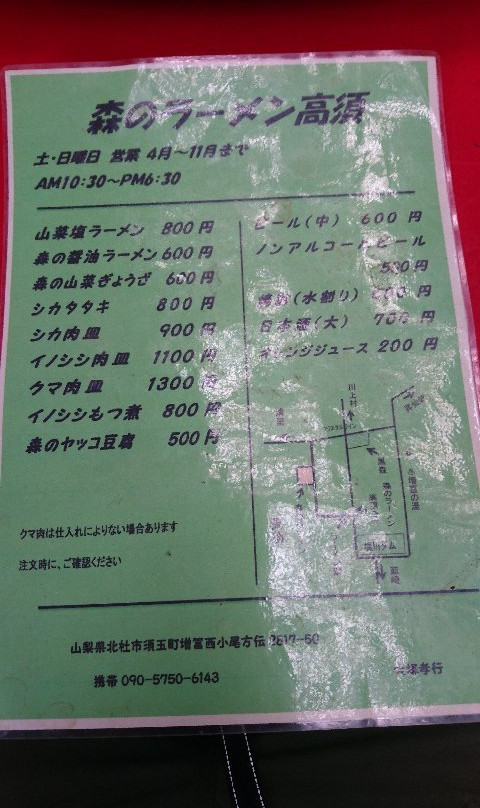 森のラーメン高須
土・日曜日 営業 4月～11月まで
AM10:30～PM6:30
山菜塩ラーメン 800円
森の醤油ラーメン 600円
森の山菜ぎょうざ 600円
シカタタキ 800円
シカ肉皿 900円
イノシシ肉皿 1100円
クマ肉皿 1300円
イノシシもつ煮 800円
森のヤッコ豆腐 500円
クマ肉は仕入れによりない場合あります
注文時に、ご確認ください
ビール(中) 600円
ノンアルコールビール
500円
(水割り) 600円
日本酒(大) 700円
オレンジジュース 200円
川上村
クリスタルライン
黒森
森のラーメン
増富の湯
塩川ダム
韮崎
山梨県北杜市須玉町増冨西小尾方伝 2617-50
携帯 090-5750-6143
孝行